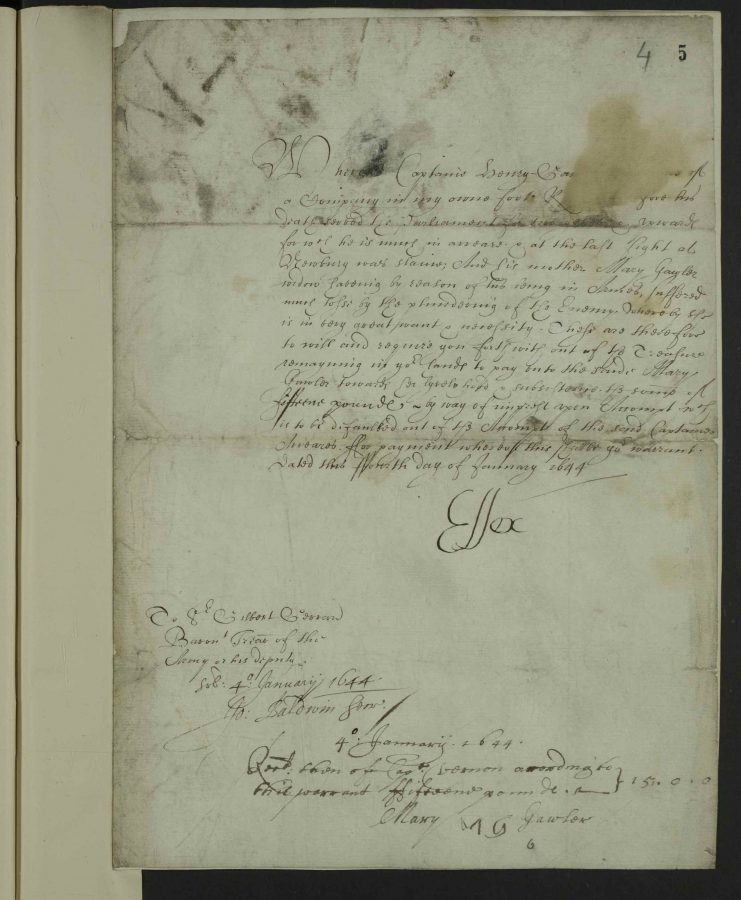 4 5
Whereas Captaine Henry Ga of
a Company in my owne foote R fore his
death served the Parliament upward
for wch he is much in arreare & at the last fight at
Newbury was slaine; And his mother Mary Gawler
widow haveing by reason of his being in Armes, suffered
much losse by the plundering of the Enemy whereby she
is in very great want & necessity. These are therefore
to will and require you forthwith out of the Treasure
remayning in yor hands to pay unto the saide Mary
Gawler towards her lyvelyhood & subsistence the some of
ffifteene pounds, by way of imprest upon Accompt wch
is to be defaulted out of the Accompt of the said Captaines
Arreares. ffor payment whereof this shalbe yor warrant.
Dated this ffourth day of January 1644
Essex
To Sr Gilbert Gerrard
Baront Treãr of the
Army or his deputy
4o January 1644.
Baldwin
4o: January. 1644.
Recd. then of Capt. Vernon according to
this warrant ffifteene pounds. } 15. 0. 0
Mary MG Gawler
6